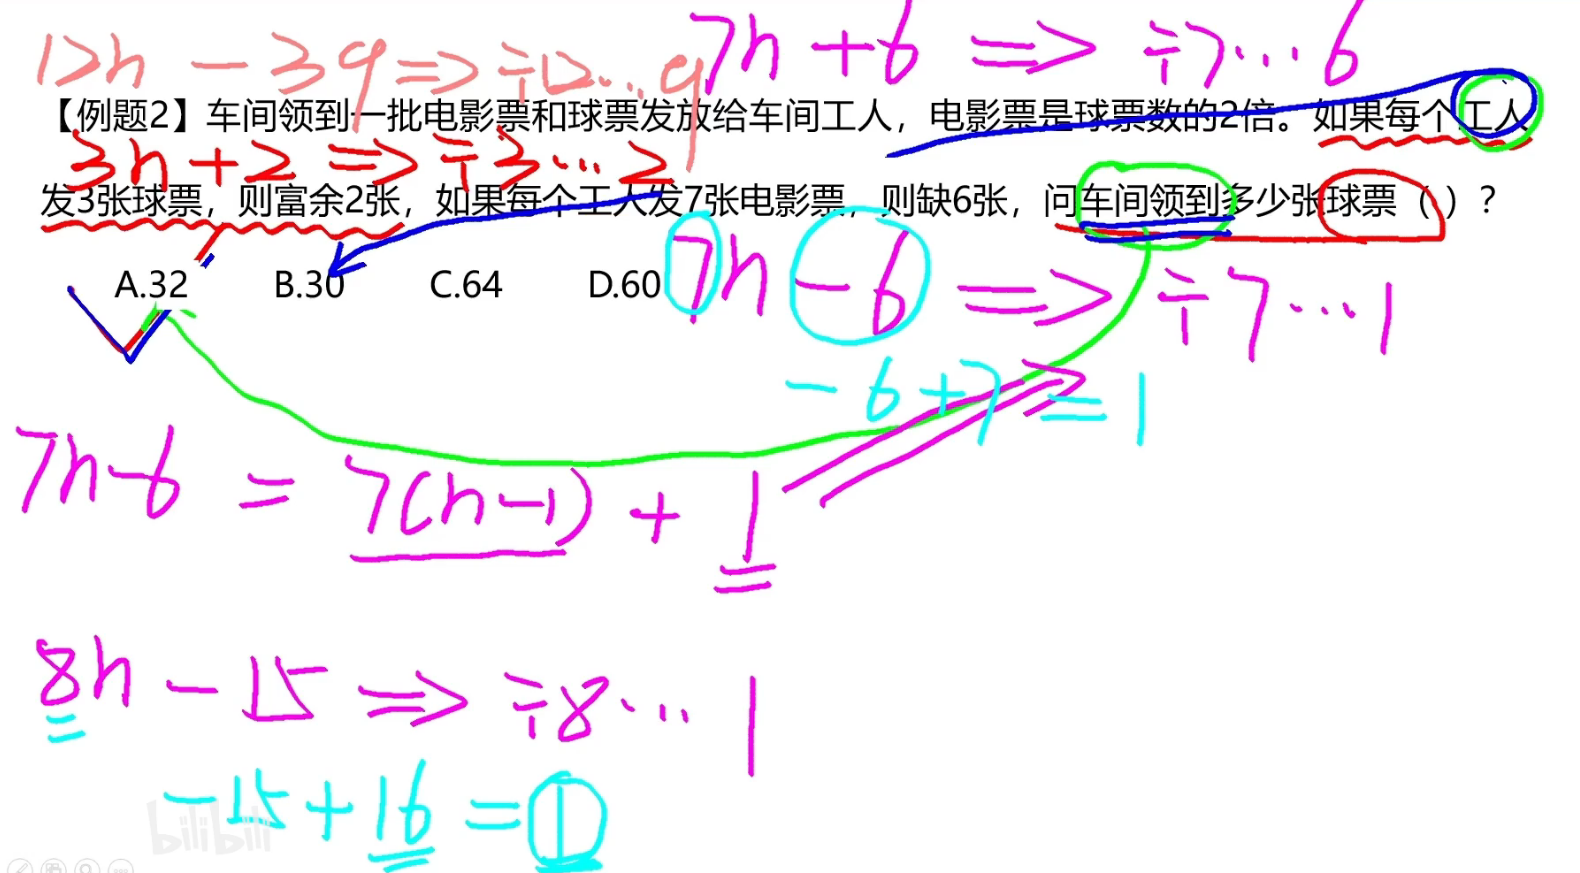 12n - 39 => ÷12…9
7n + 6 => ÷7…6
【例题2】车间领到一批电影票和球票发放给车间工人，电影票是球票数的2倍。如果每个工人
3n + 2 => ÷3…2
发3张球票，则富余2张，如果每个工人发7张电影票，则缺6张，问车间领到多少张球票（ ）？
A.32 B.30 C.64 D.60
7n - 6 => ÷7…1
- 6 + 7 = 1
7n - 6 = 7(n-1) + 1
8n - 15 => ÷8…1
-15 + 16 = 1
bilibili